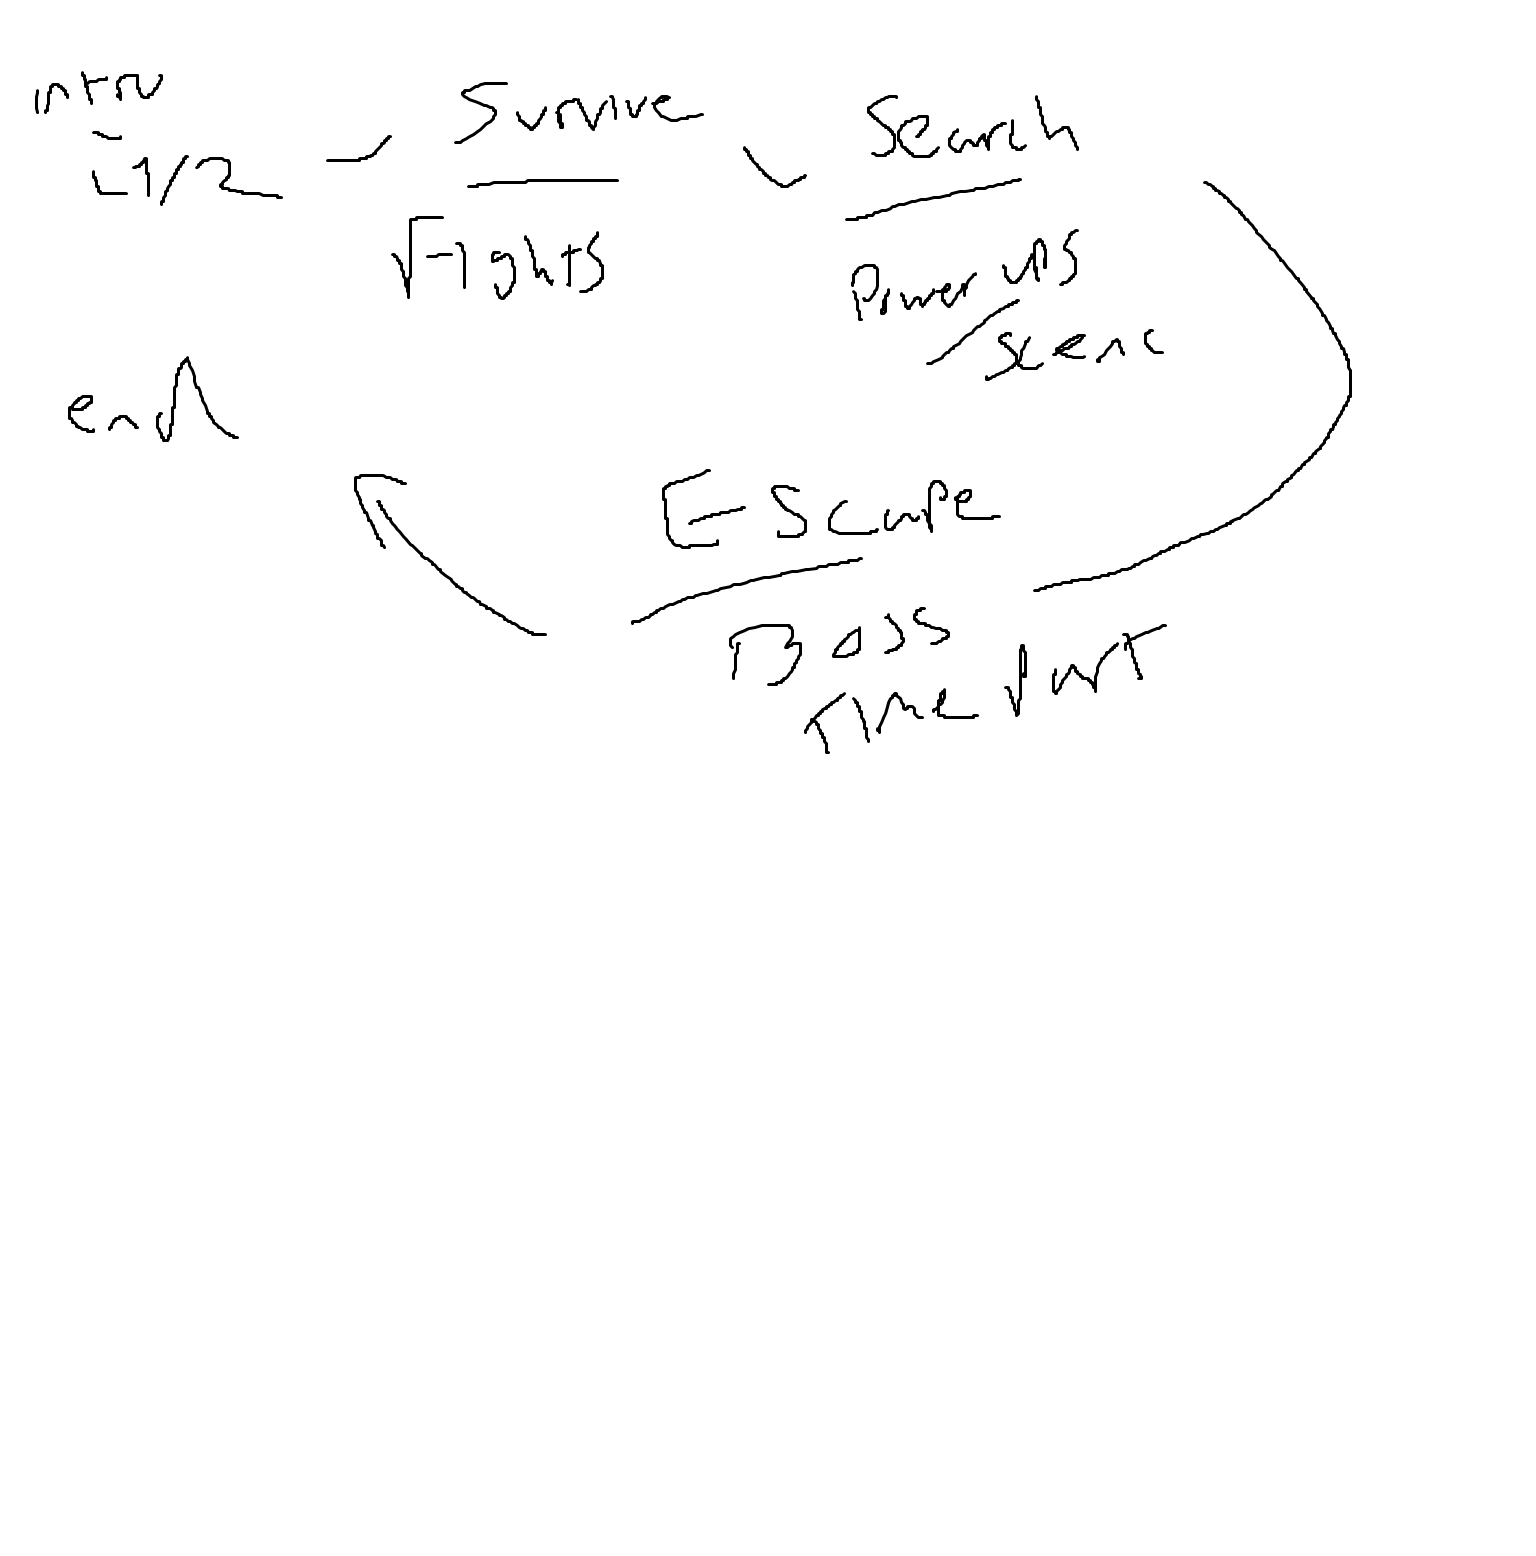 intro
L1/2
Survive
Fights
Search
Power ups
/scene
end
Escape
Boss
Time part